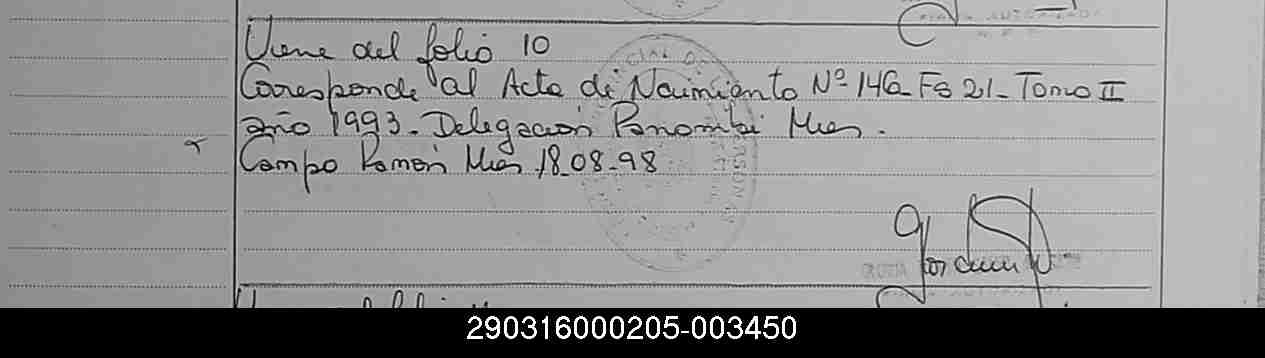 Viene del folio 10
Corresponde al Acta de Nacimiento Nº 146 Fs 21 - Tomo II
año 1993 - Delegación Panambi Mnes.
Campo Ramón Mnes 18-08-98
290316000205-003450